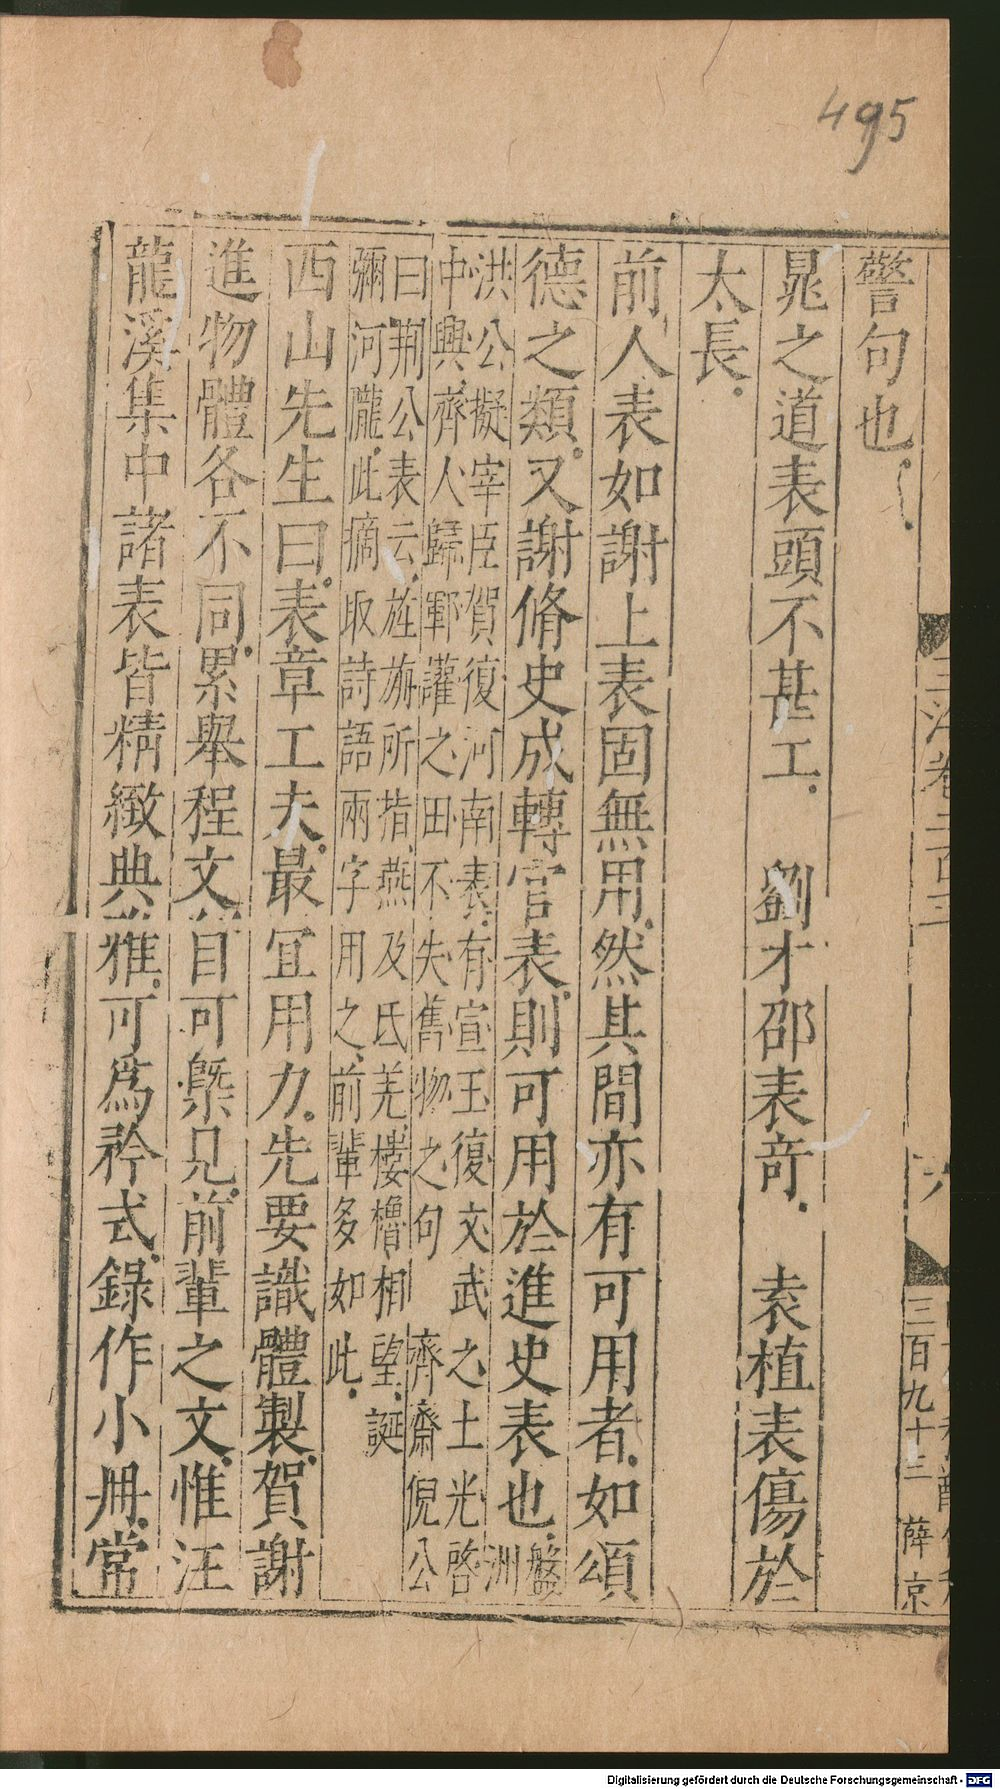 495
警句也
晁之道表頭不甚工 劉才邵表奇 袁植表傷於
太長
前人表如謝上表固無用然其間亦有可用者如頌
德之類又謝脩史成轉官表則可用於進史表也盤洲
洪公擬宰臣賀復河南表有宣王復文武之土光啓
中興齊人歸鄆讙之田不失舊物之句 齊齋倪公
曰荆公表云旌旃所指燕及氐羌樓櫓相望誕
彌河隴此摘取詩語兩字用之前輩多如此
西山先生曰表章工夫最宜用力先要識體製賀謝
進物體各不同累舉程文自可槩見前輩之文惟汪
龍溪集中諸表皆精緻典雅可爲矜式錄作小冊常
三百九十三 薛京
Digitalisierung gefördert durch die Deutsche Forschungsgemeinschaft - DFG